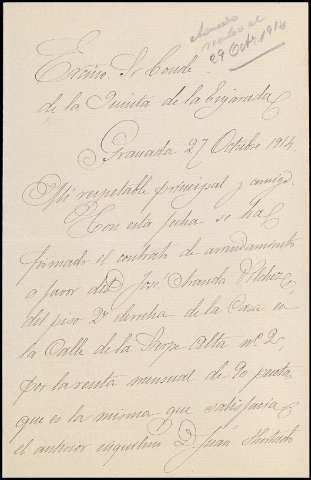 29 Octe. 1914
Excmo. Sr. Conde
de la Quinta de la Enjarada
Granada 27 Octubre 1914
Mi respetable principal y amigo:
Con esta fecha se ha
firmado el contrato de arrendamiento
a favor de D. José Aranda Vilchez
del piso 2º derecha de la Casa en
la Calle de la Alta nº 2,
por la renta mensual de 20 pesetas
que es la misma que satisfacia
el anterior inquilino D. Juan Hurtado